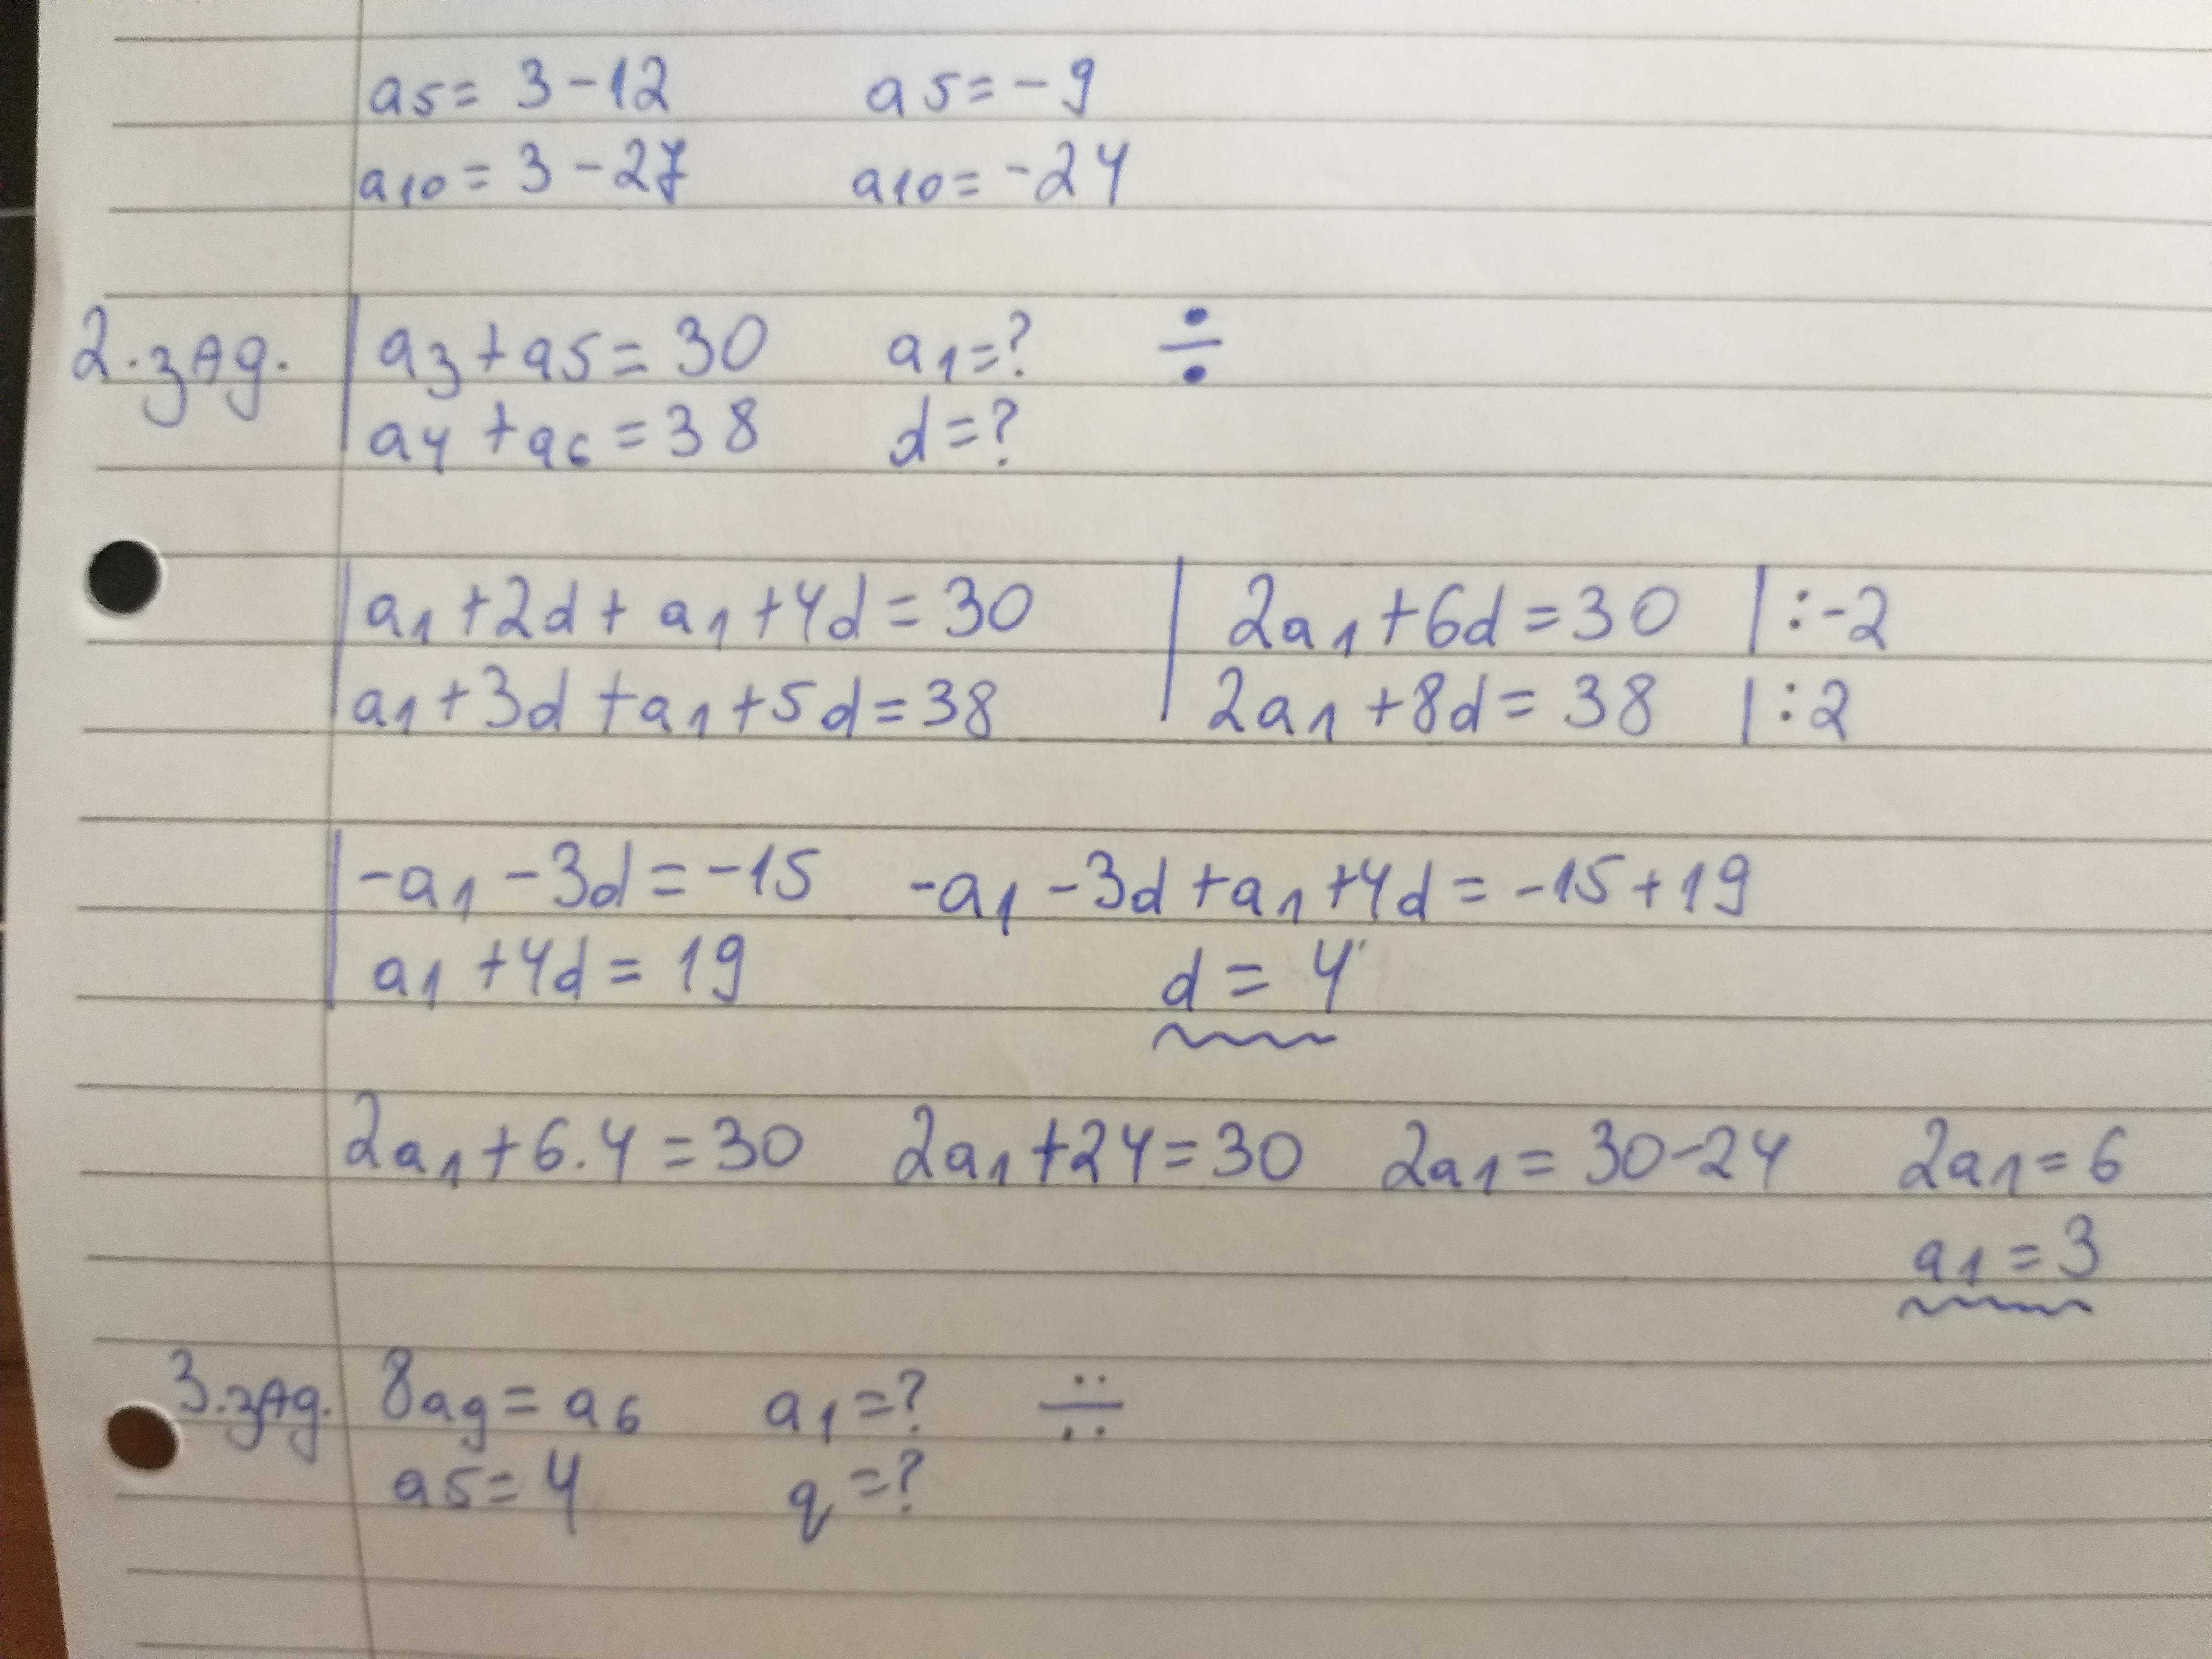 a5 = 3 - 12 a5 = - 9
a10 = 3 - 27 a10 = - 24
2. зад. a3 + a5 = 30 a1 = ? ÷
a4 + a6 = 38 d = ?
a1 + 2d + a1 + 4d = 30 2a1 + 6d = 30 | : -2
a1 + 3d + a1 + 5d = 38 2a1 + 8d = 38 | : 2
-a1 - 3d = -15 -a1 - 3d + a1 + 4d = -15 + 19
a1 + 4d = 19 d = 4
2a1 + 6.4 = 30 2a1 + 24 = 30 2a1 = 30 - 24 2a1 = 6
a1 = 3
3. зад. 8a9 = a6 a1 = ? ∺
a5 = 4 q = ?